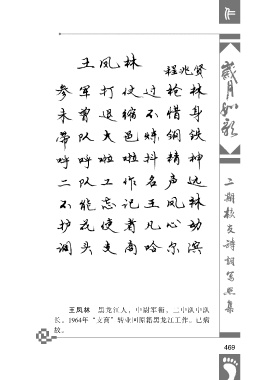 作
岁月如歌
二期校友诗词写照集
王凤林
程兆贤
参军打仗过枪林
未曾退缩不惜身
带队火色炼钢铁
呼呼啦啦抖精神
二队工作名声远
不能忘记王凤林
护花使者凡心动
调头支商哈尔滨
王凤林 黑龙江人，中尉军衔。二中队中队
长。1964年“支商”转业回原籍黑龙江工作。已病
故。
469